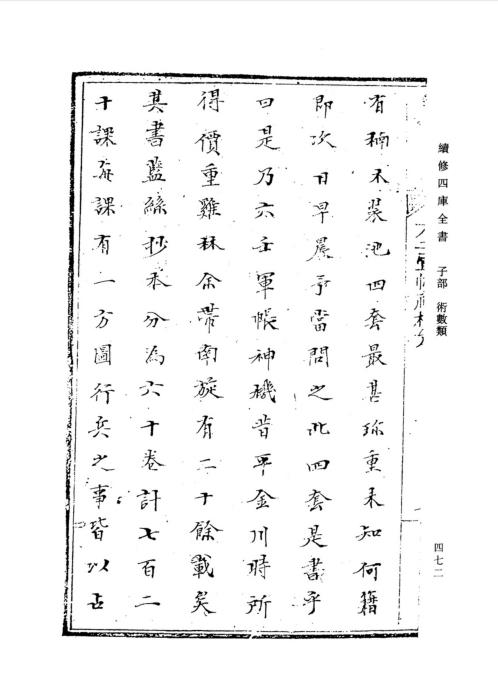 續修四庫全書　子部　術數類
四七二
有稱不裝池四套最甚珍重未知何籍
即次日早晨予當問之此四套是書乎
曰是乃六壬軍帳神機昔平金川時所
得價重雞林余帶南旋有二十餘載矣
其書藍絲抄本分為六十卷計七百二
十課每課有一方圖行兵之事皆以占